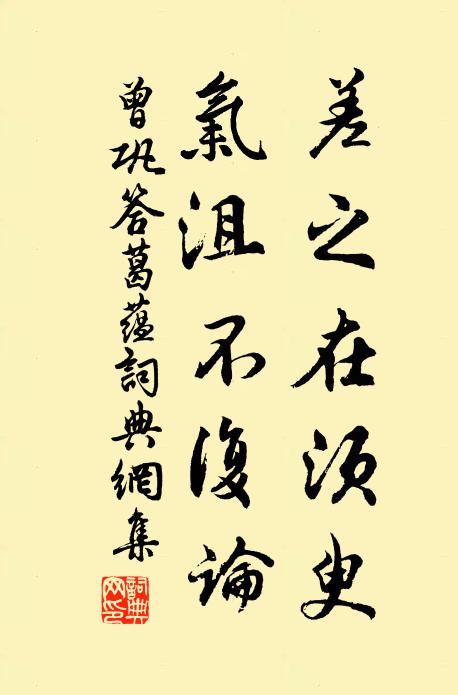 差之在須臾
氣沮不復論
曾巩答葛蘊詞典網集
詞典網印